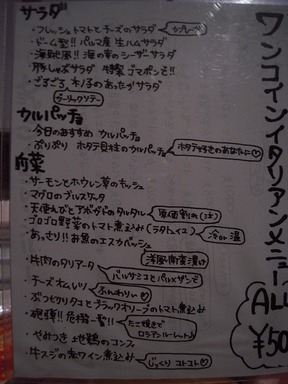 ワンコインイタリアンメニュー
ALL
¥50
サラダ
・フレッシュトマトとチーズのサラダ
カプレーゼ
・ドーム型!! パルマ産 生ハムサラダ
・海賊風!! 海の幸のシーザーサラダ
・豚しゃぶサラダ 特製 ゴマポンも!!
・ごろごろ 木ノ子のあったかサラダ
ガーリックソテー
カルパッチョ
・今日のおすすめ カルパッチョ
・ぷりぷり ホタテ貝柱のカルパッチョ
ホタテ好きのあなたに♡
前菜
・サーモンとホウレン草のキッシュ
・マグロのブルスケッタ
・天使えびとアボガドのタルタル
原価割れ(泣)
・ゴロゴロ野菜のトマト煮込み(ラタトゥイユ)
冷or温
・あっさり!! お魚のエスカベッシュ
洋風南蛮漬け
・牛肉のタリアータ
バルサミコとパルメザンで
・チーズオムレツ
ふんわりぃ♡
・ぶつ切りタコとブラックオリーブのトマト煮込み
・砲弾!! 危機一髪!!
たこ焼きでロシアンルーレット♪
・やみつき 地鶏のコンフィ
・牛スジの赤ワイン煮込み
じっくり コトコト♡